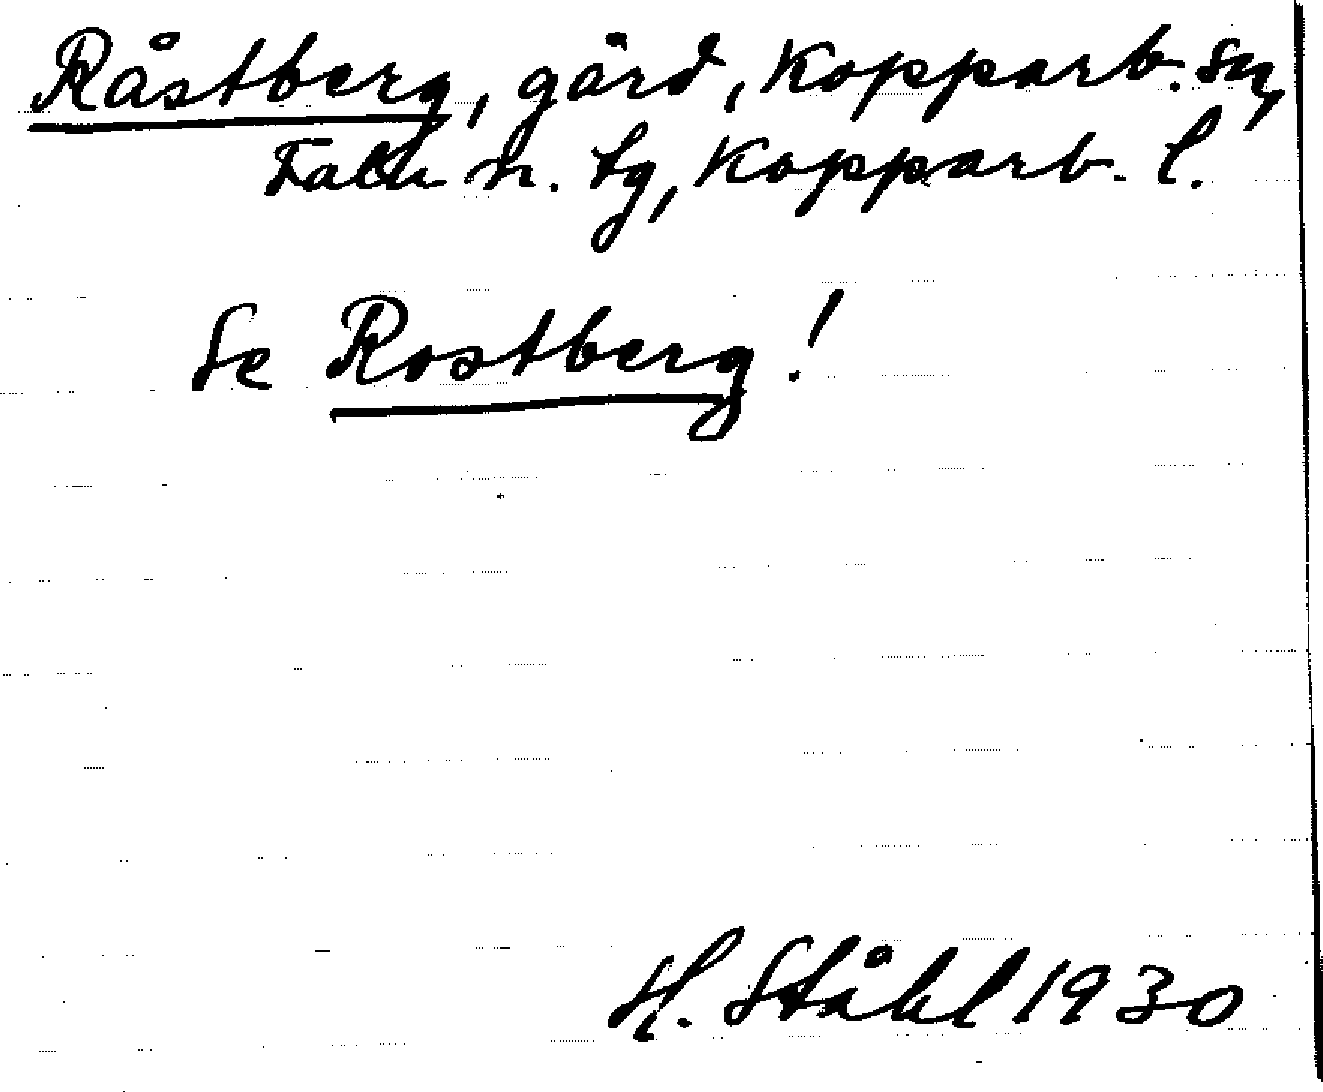 Råstberg, gård, Kopparb. sn,
Falu n. tg, Kopparb. l.
Se Rostberg!
H. Ståhl 1930